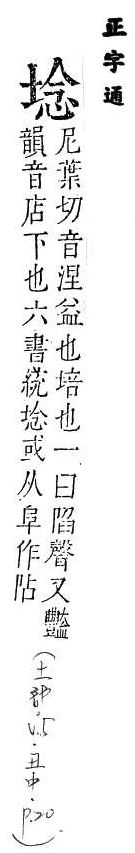 正字通
埝
尼葉切音涅益也培也一曰陷聲又豔
韻音店下也六書統埝或从阜作阽
(土部.V.5.丑中.p.20)